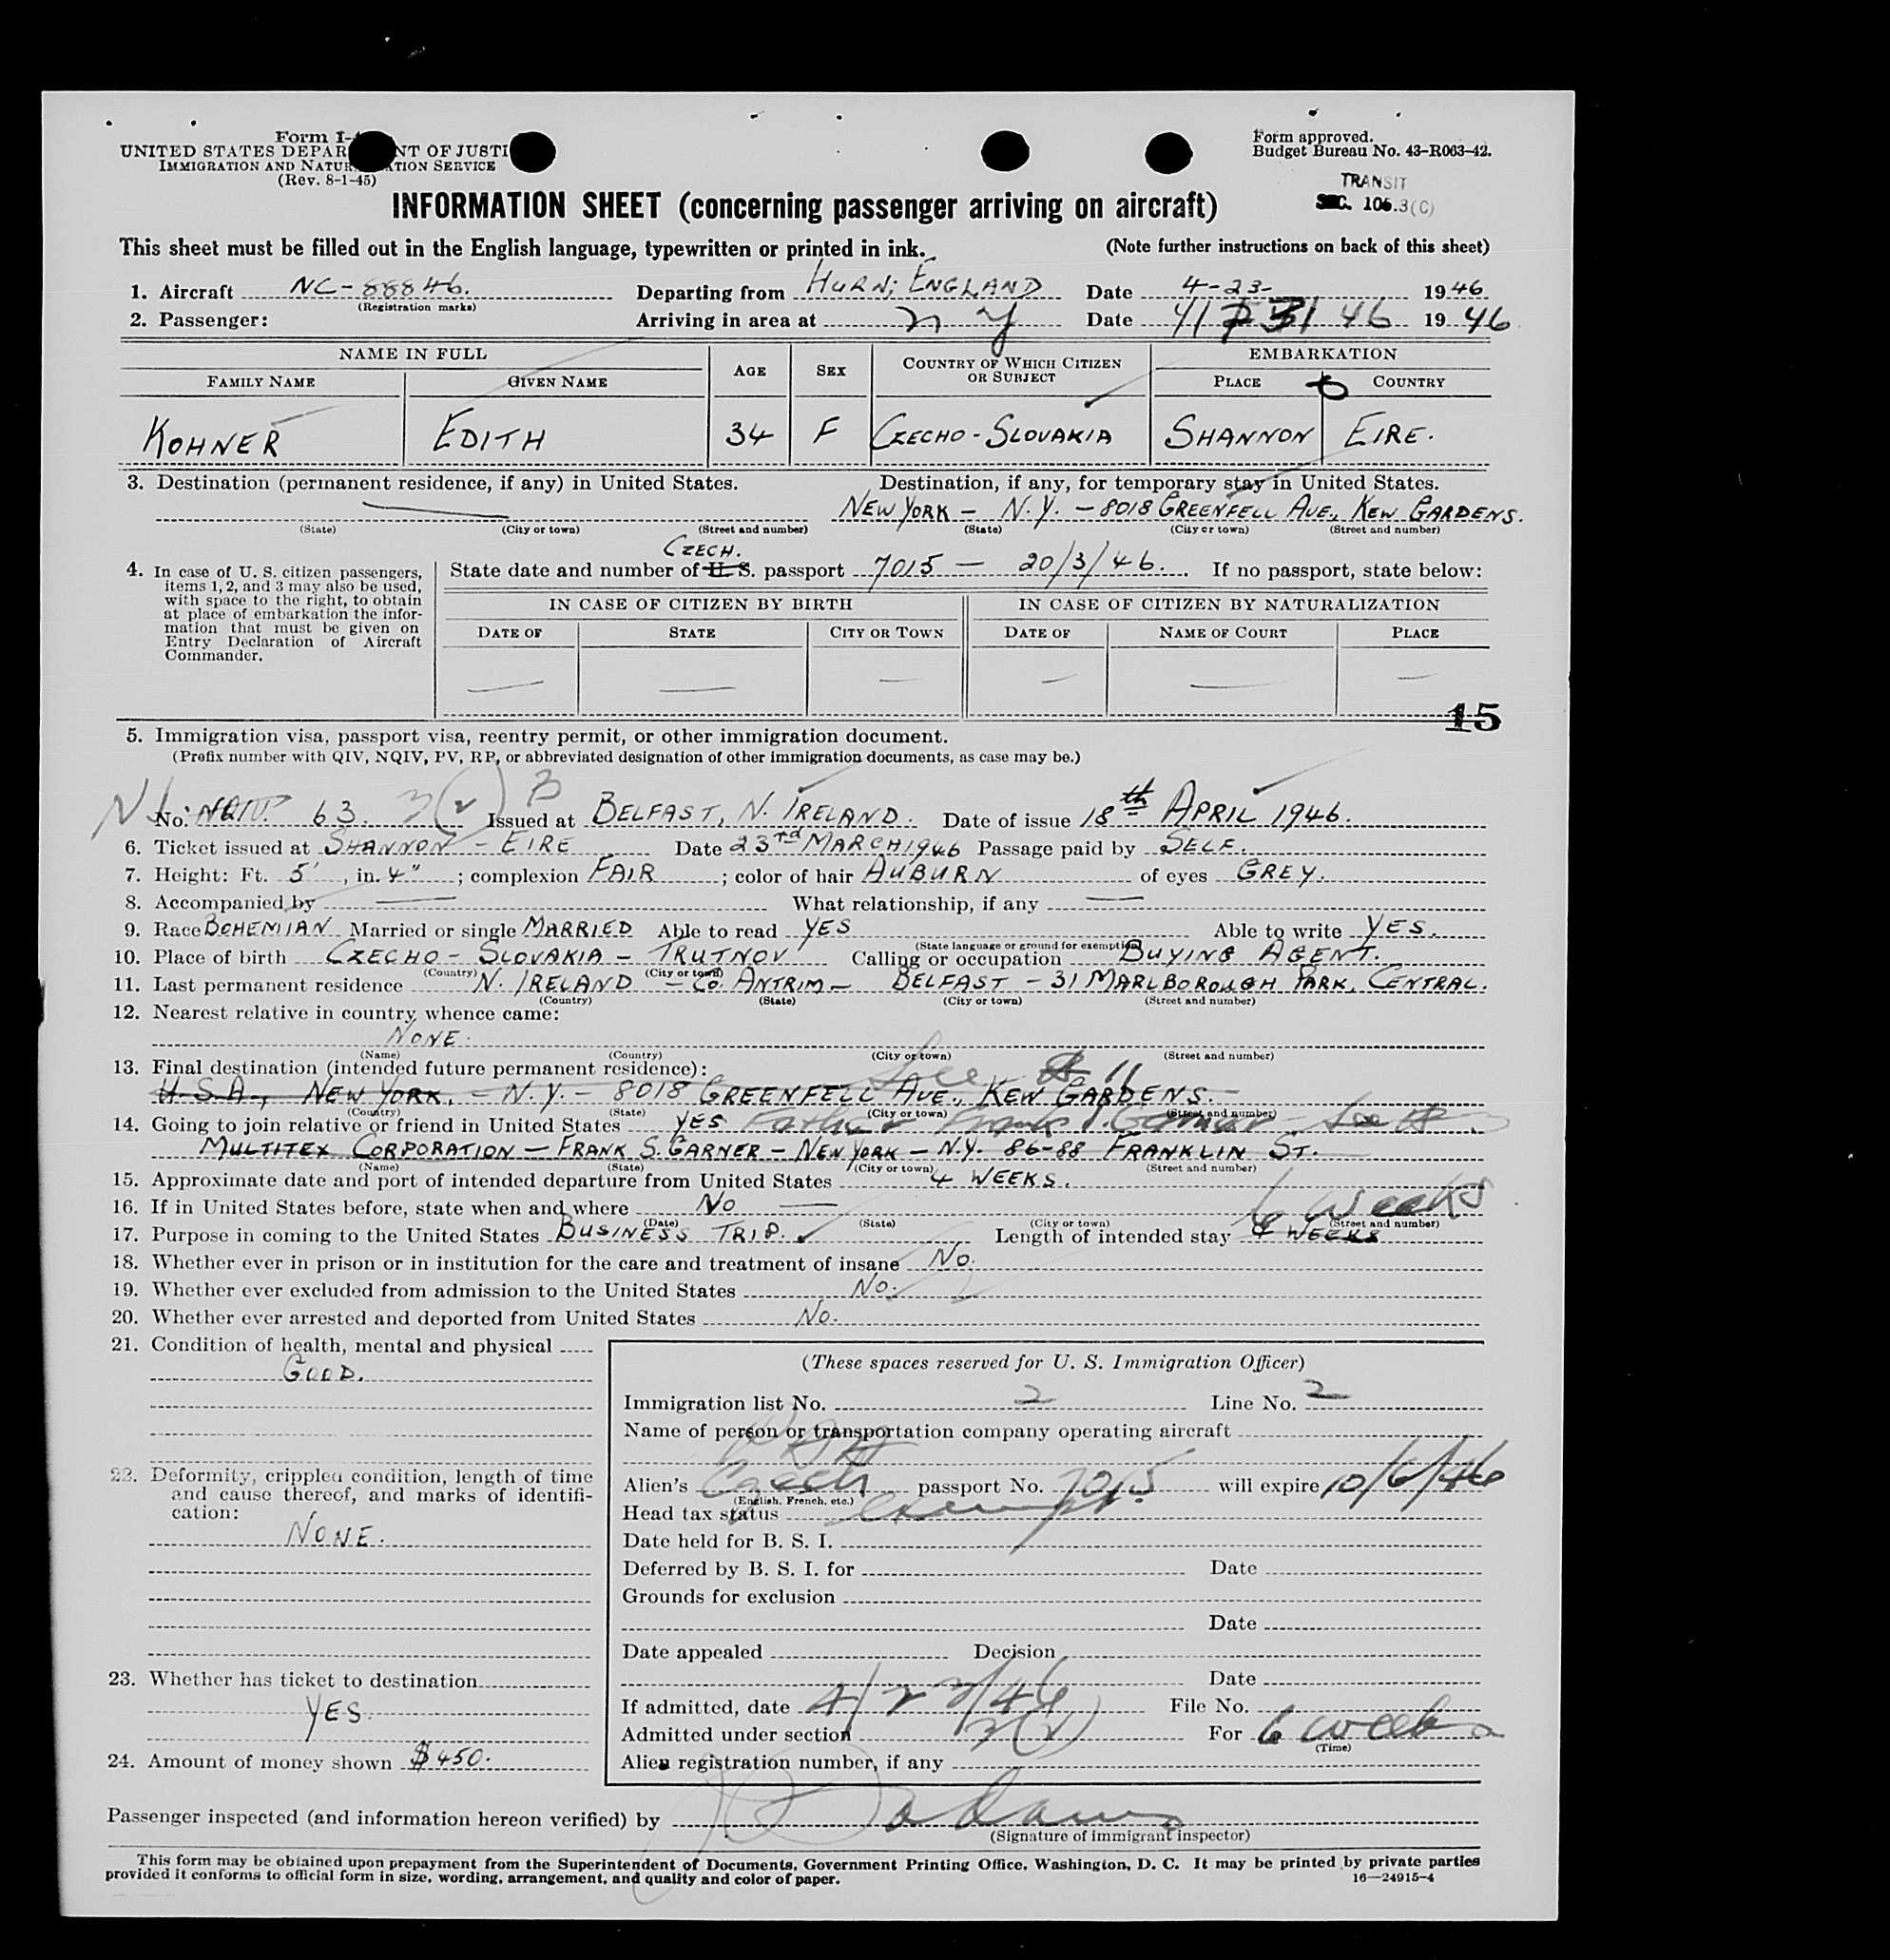 Form I-
UNITED STATES DEPAR NT OF JUSTI
IMMIGRATION AND NATUR ATION SERVICE
(Rev. 8-1-45)
Form approved.
Budget Bureau No. 43-R063-42.
TRANSIT
SEC. 106.3(C)
INFORMATION SHEET (concerning passenger arriving on aircraft)
This sheet must be filled out in the English language, typewritten or printed in ink. (Note further instructions on back of this sheet)
1. Aircraft NC-88846. Departing from HURN; ENGLAND Date 4-23- 1946
(Registration marks)
2. Passenger: Arriving in area at N Y Date 46 1946
NAME IN FULL AGE SEX COUNTRY OF WHICH CITIZEN OR SUBJECT EMBARKATION
FAMILY NAME GIVEN NAME PLACE COUNTRY
KOHNER EDITH 34 F CZECHO-SLOVAKIA SHANNON EIRE.
3. Destination (permanent residence, if any) in United States. Destination, if any, for temporary stay in United States.
— NEW YORK — N.Y. — 8018 GREENFELL AVE., KEW GARDENS.
(State) (City or town) (Street and number) (State) (City or town) (Street and number)
CZECH.
4. In case of U. S. citizen passengers, items 1, 2, and 3 may also be used, with space to the right, to obtain at place of embarkation the information that must be given on Entry Declaration of Aircraft Commander.
State date and number of U. S. passport 7015 — 20/3/46. If no passport, state below:
IN CASE OF CITIZEN BY BIRTH IN CASE OF CITIZEN BY NATURALIZATION
DATE OF STATE CITY OR TOWN DATE OF NAME OF COURT PLACE
— — — — — —
15
5. Immigration visa, passport visa, reentry permit, or other immigration document.
(Prefix number with QIV, NQIV, PV, RP, or abbreviated designation of other immigration documents, as case may be.)
No. NQIV. 63. 3(2) B Issued at BELFAST, N. IRELAND. Date of issue 18th APRIL 1946.
6. Ticket issued at SHANNON - EIRE Date 23rd MARCH 1946 Passage paid by SELF.
7. Height: Ft. 5', in. 4"; complexion FAIR; color of hair AUBURN of eyes GREY.
8. Accompanied by — What relationship, if any —
9. Race BOHEMIAN Married or single MARRIED Able to read YES Able to write YES.
(State language or ground for exemption)
10. Place of birth CZECHO-SLOVAKIA — TRUTNOV Calling or occupation BUYING AGENT.
(Country) (City or town)
11. Last permanent residence N. IRELAND — Co. ANTRIM — BELFAST — 31 MARLBOROUGH PARK, CENTRAL.
(Country) (State) (City or town) (Street and number)
12. Nearest relative in country whence came:
NONE.
(Name) (Country) (City or town) (Street and number)
13. Final destination (intended future permanent residence): See # 11
U.S.A., NEW YORK, — N.Y. — 8018 GREENFELL AVE., KEW GARDENS.
(Country) (State) (City or town) (Street and number)
14. Going to join relative or friend in United States YES Father Frank S. Garner
MULTITEX CORPORATION — FRANK S. GARNER — NEW YORK — N.Y. 86-88 FRANKLIN ST.
(Name) (State) (City or town) (Street and number)
15. Approximate date and port of intended departure from United States 4 WEEKS.
16. If in United States before, state when and where No — 6 Weeks
(Date) (State) (City or town) (Street and number)
17. Purpose in coming to the United States BUSINESS TRIP. Length of intended stay 4 WEEKS
18. Whether ever in prison or in institution for the care and treatment of insane No.
19. Whether ever excluded from admission to the United States No.
20. Whether ever arrested and deported from United States No.
21. Condition of health, mental and physical
GOOD.
22. Deformity, crippled condition, length of time and cause thereof, and marks of identification:
NONE.
23. Whether has ticket to destination
YES.
24. Amount of money shown $450.
(These spaces reserved for U. S. Immigration Officer)
Immigration list No. 2 Line No. 2
Name of person or transportation company operating aircraft
Alien's Czech passport No. 7015 will expire 10/6/46
(English, French, etc.)
Head tax status exempt
Date held for B. S. I.
Deferred by B. S. I. for Date
Grounds for exclusion
Date
Date appealed Decision
Date
If admitted, date 4/23/46 File No.
Admitted under section 3(2) For 6 weeks
(Time)
Alien registration number, if any
Passenger inspected (and information hereon verified) by
(Signature of immigrant inspector)
This form may be obtained upon prepayment from the Superintendent of Documents, Government Printing Office, Washington, D. C. It may be printed by private parties
provided it conforms to official form in size, wording, arrangement, and quality and color of paper. 16—24915-4